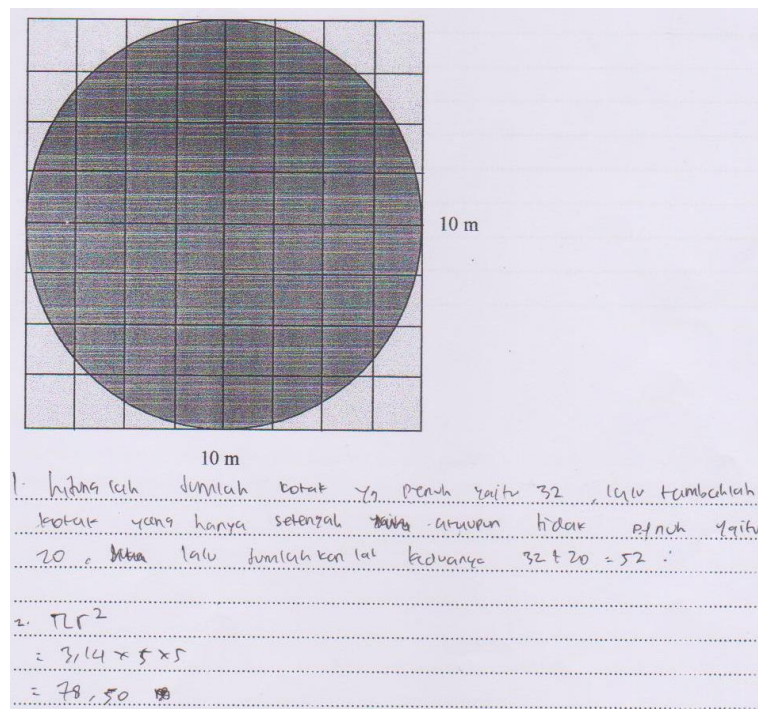 10 m
10 m
1. hitunglah Jumlah kotak yg penuh yaitu 32, lalu tambahlah
kotak yang hanya setengah ataupun tidak penuh yaitu
20, lalu Jumlahkan lal keduanya 32 + 20 = 52.
2. πr²
= 3,14 × 5 × 5
= 78,50